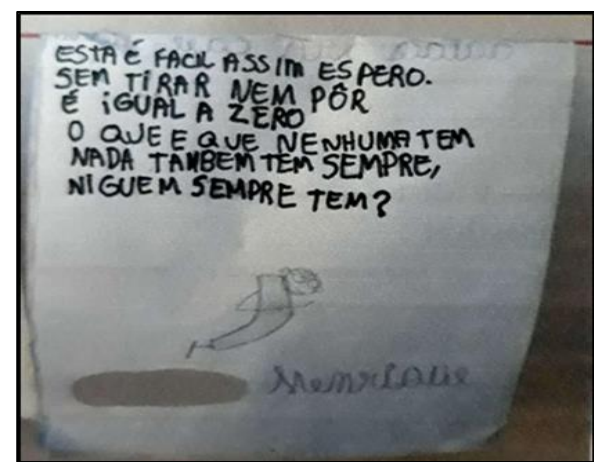 ESTA É FACIL ASSIM ESPERO.
SEM TIRAR NEM PÔR
É IGUAL A ZERO
O QUE E QUE NENHUMA TEM
NADA TAMBEM TEM SEMPRE,
NIGUEM SEMPRE TEM?
Henrique